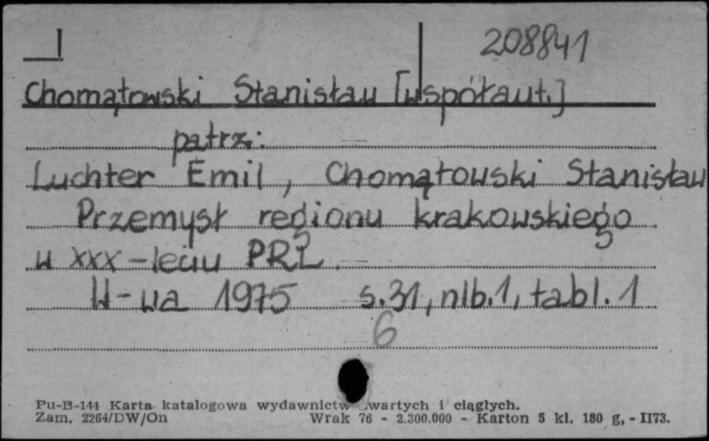 I 208841
Chomątowski Stanisław [współaut.]
patrz:
Luchter Emil, Chomątowski Stanisław
Przemysł regionu krakowskiego
w xxx-leciu PRL.
W-wa 1975 s.31, nlb.1, tabl. 1
6
Pu-B-144 Karta katalogowa wydawnictw zwartych i ciągłych.
Zam. 2264/DW/On Wrak 76 - 2.300.000 - Karton 5 kl. 180 g, - II73.